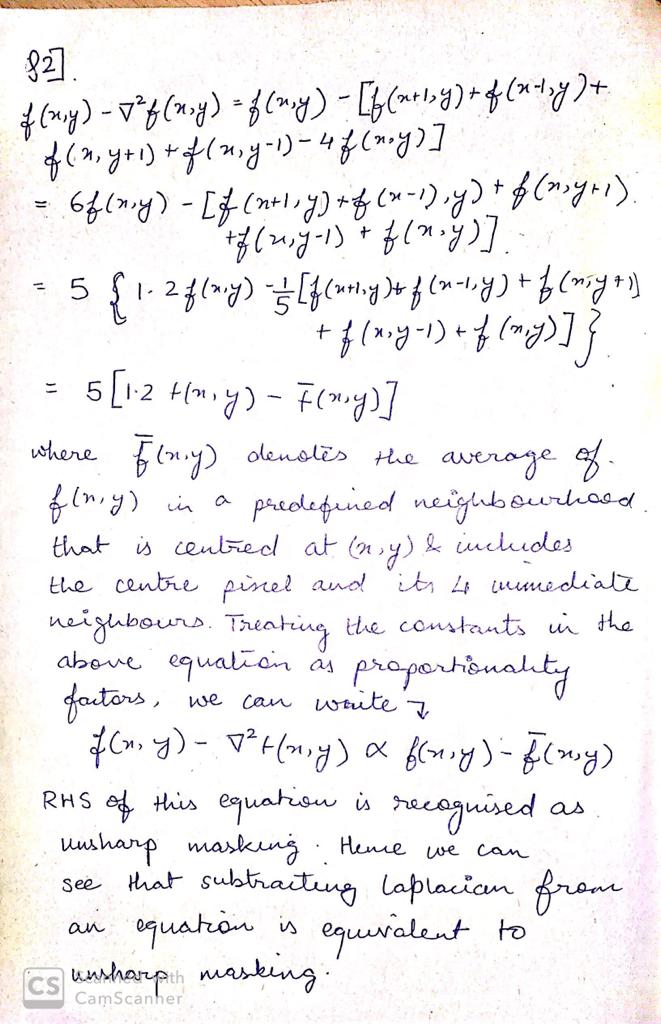 82].
f(x,y) - ∇²f(x,y) = f(x,y) - [f(x+1,y) + f(x-1,y) +
f(x, y+1) + f(x, y-1) - 4f(x,y)]
= 6f(x,y) - [f(x+1,y) + f(x-1),y) + f(x,y+1)
+ f(x,y-1) + f(x,y)]
= 5 { 1.2f(x,y) - 1/5 [f(x+1,y) + f(x-1,y) + f(x,y+1)
+ f(x,y-1) + f(x,y)] }
= 5[1.2 f(x,y) - f̄(x,y)]
where f̄(x,y) denotes the average of
f(x,y) in a predefined neighbourhood
that is centred at (x,y) & includes
the centre pixel and its 4 immediate
neighbours. Treating the constants in the
above equation as proportionality
factors, we can write ↴
f(x,y) - ∇²f(x,y) ∝ f(x,y) - f̄(x,y)
RHS of this equation is recognised as
unsharp masking. Hence we can
see that subtracting Laplacian from
an equation is equivalent to
unsharp masking.
CS Scanned with
CamScanner